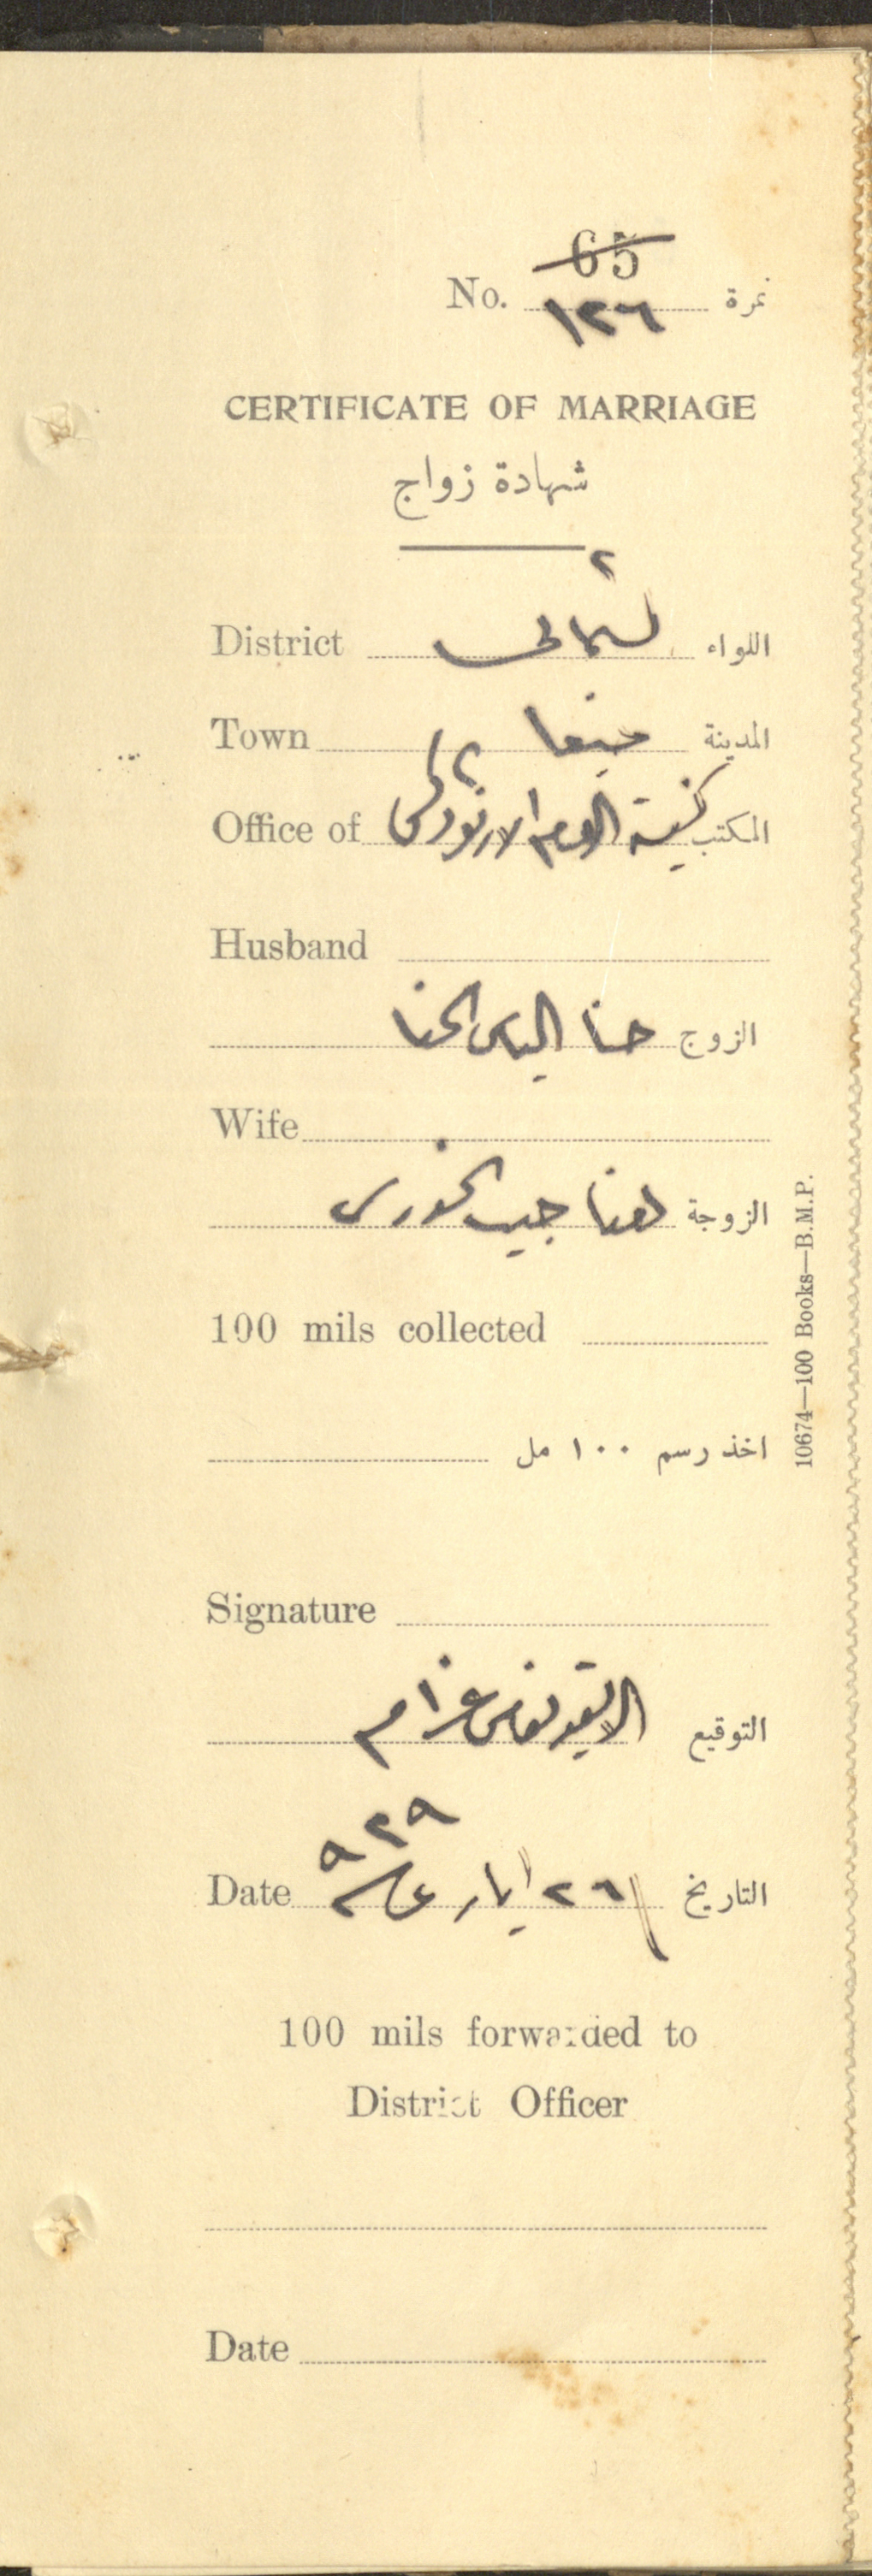 65
No. ١٢٦ نمرة
CERTIFICATE OF MARRIAGE
شهادة زواج
District الشمالي اللواء
Town حيفا المدينة
Office of كنيسة الروم الارثوذكس المكتب
Husband
الزوج حنا الياس الحنا
Wife
الزوجة حبيب الخوري
100 mils collected
اخذ رسم ١٠٠ مل
Signature
التوقيع الايقونوس عزام
Date ٢٦ ايار ٩٢٩ التاريخ
100 mils forwarded to
District Officer
Date
10674—100 Books—B.M.P.